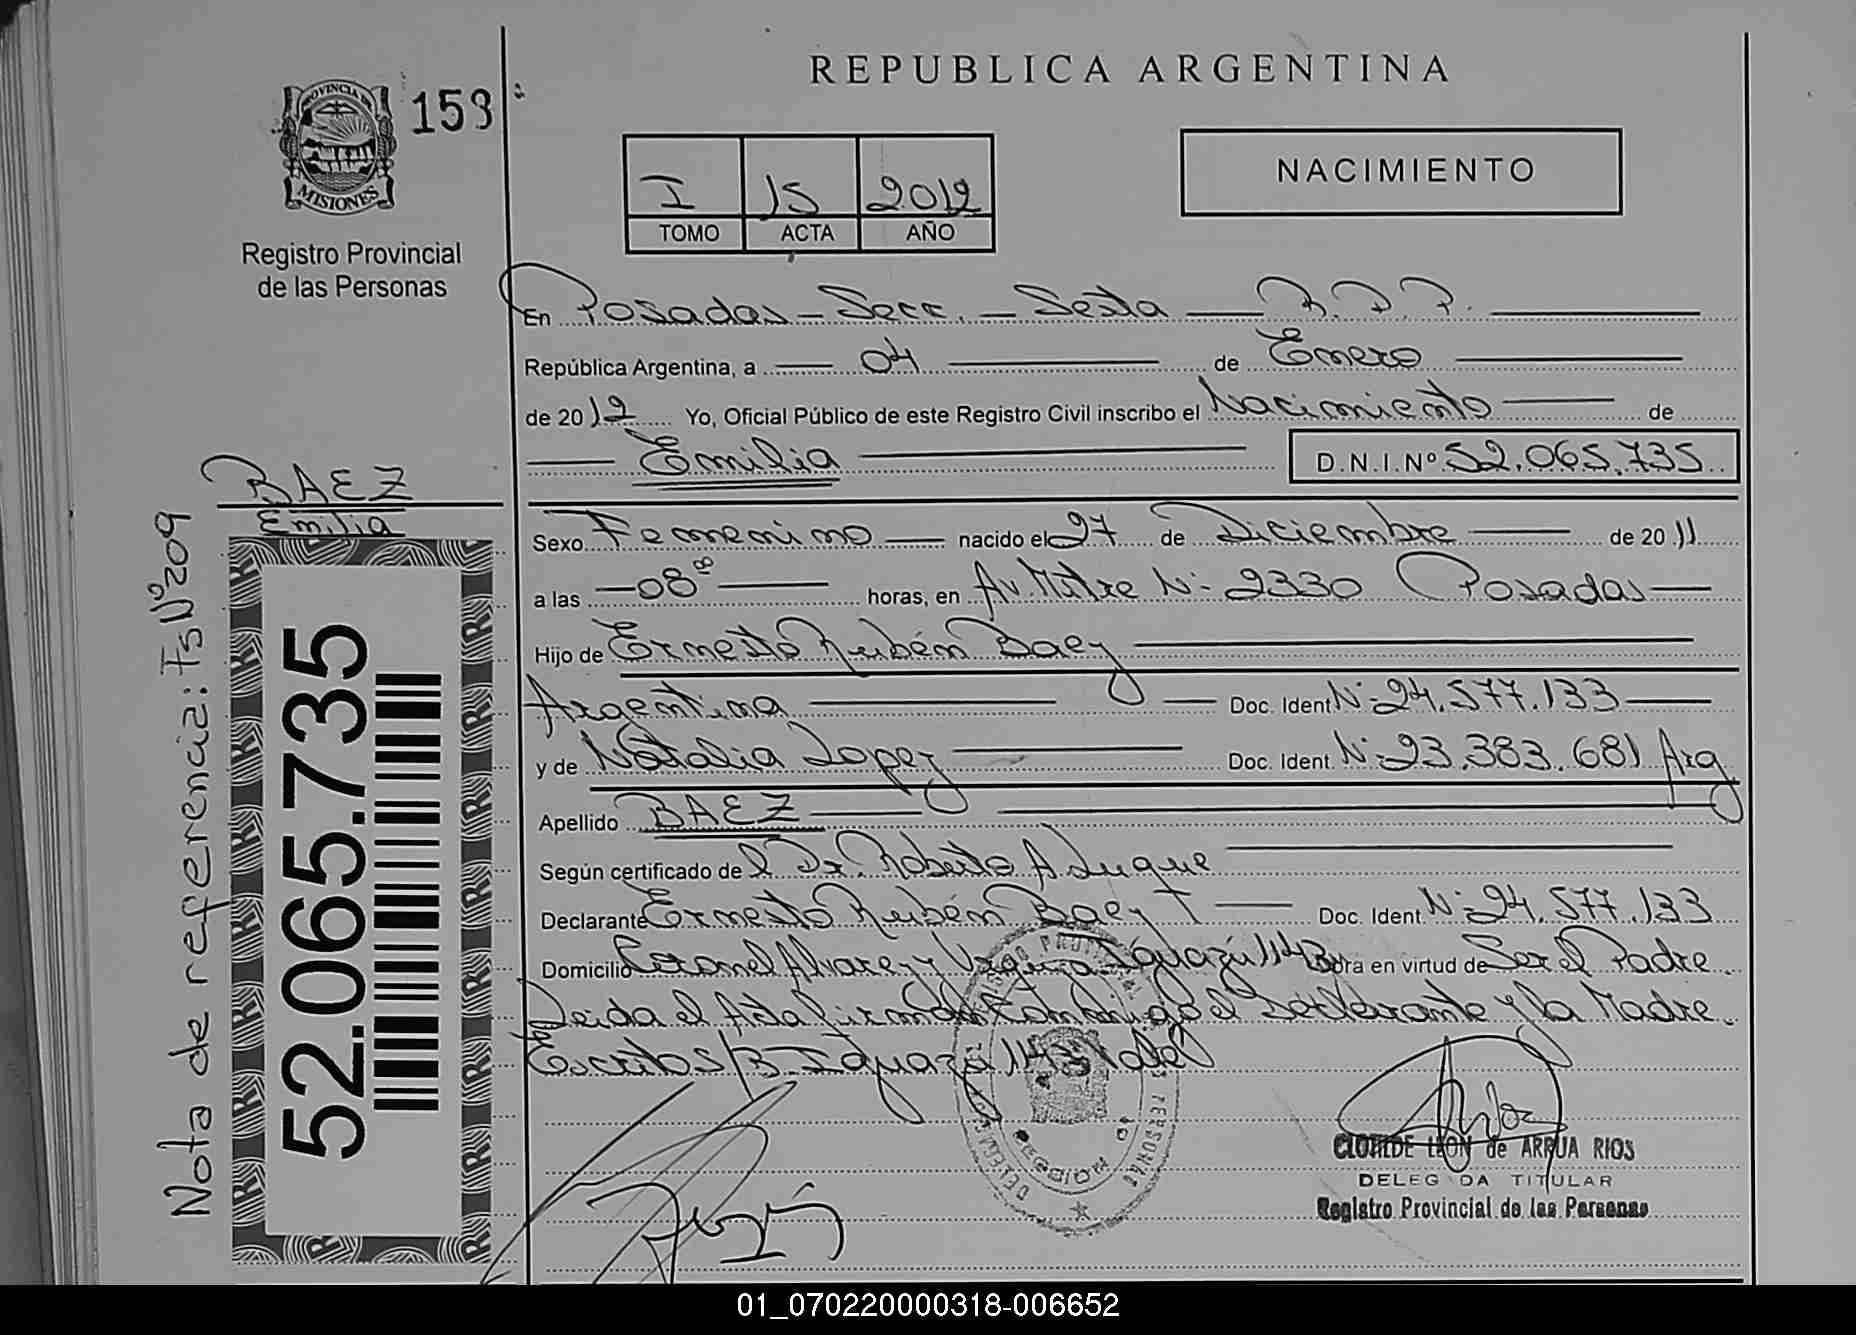 REPUBLICA ARGENTINA
PROVINCIA DE
MISIONES
153
Registro Provincial
de las Personas
I 15 2012
TOMO ACTA AÑO
NACIMIENTO
En Posadas - Secc. - Sexta - R.P.P.
República Argentina, a 04 de Enero
de 2012 Yo, Oficial Público de este Registro Civil inscribo el Nacimiento de
Emilia D.N.I.Nº 52.065.735
BAEZ
Emilia
Nota de referencia: Fs Nº209
52.065.735
Sexo Femenino nacido el 27 de Diciembre de 2011
a las 08⁰⁰ horas, en Av. Mitre Nº 2330 Posadas
Hijo de Ernesto Rubén Baez
Argentina Doc. Ident. Nº 24.577.133
y de Natalia Lopez Doc. Ident. Nº 23.383.681 Arg
Apellido BAEZ
Según certificado de l Dr. Roberto A Luque
Declarante Ernesto Rubén Baez Doc. Ident. Nº 24.577.133
Domicilio Coronel Alvarez y Iguazú 1143 obra en virtud de Ser el Padre
Leida el Acta firman Conmigo el Declarante y la Madre
Escritos/B. Iguazú 1143 Vale
REGION
CLOTILDE LEON de ARRUA RIOS
DELEGADA TITULAR
Registro Provincial de las Personas
01_070220000318-006652